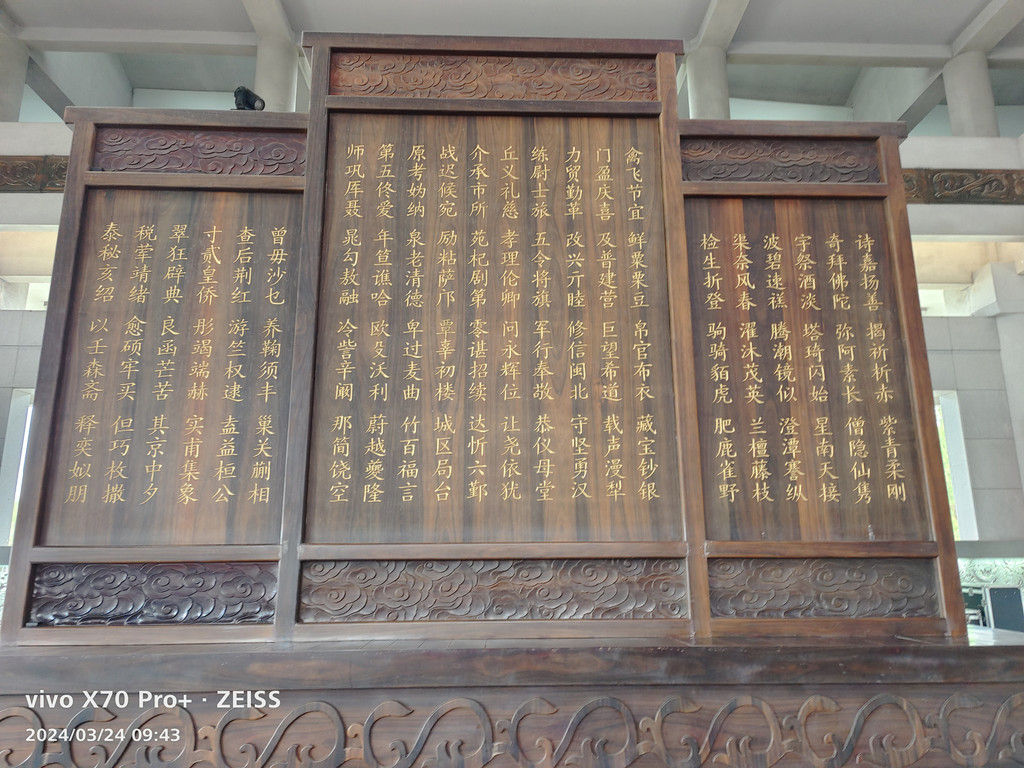 诗嘉扬善 揭祈析赤 紫青柔刚
奇拜佛陀 弥阿素长 僧隐仙隽
宇祭酒淡 塔琦闪始 星南天接
波碧速禚 腾潮镜似 澄潭謇纵
渠奈风春 濯沐茂英 兰檀藤枝
检生折登 驹骑貊虎 肥鹿雀野
禽飞节宜 鲜粟栗豆 帛官布衣 藏宝钞银
门盈庆喜 及普建营 巨望希道 载声漫犁
力贸勤革 改兴亓睦 修信闽北 守坚勇汉
练尉士旅 五令将旗 军行奉敬 恭仪母堂
丘义礼慈 孝理伦卿 问永辉位 让尧依犹
介承市所 苑杞剧第 零谌招续 达忻六鄞
战迟候宛 励粘萨邝 覃辜初楼 城区局台
原考妫纳 泉老清德 卑过麦曲 竹百福言
第五佟爱 年笪谯哈 欧殳沃利 蔚越夔隆
师巩厍聂 晁勾敖融 冷訾辛阚 那简饶空
曾毋沙乜 养鞠须丰 巢关蒯相
查后荆红 游竺权逯 盍益桓公
寸贰皇侨 彤竭端赫 实甫集象
翠狂辟典 良函芒苦 其京中夕
税荤靖绪 愈硕牢买 但巧枚撒
泰秘亥绍 以壬森斋 释奕姒朋
vivo X70 Pro+ · ZEISS
2024/03/24 09:43